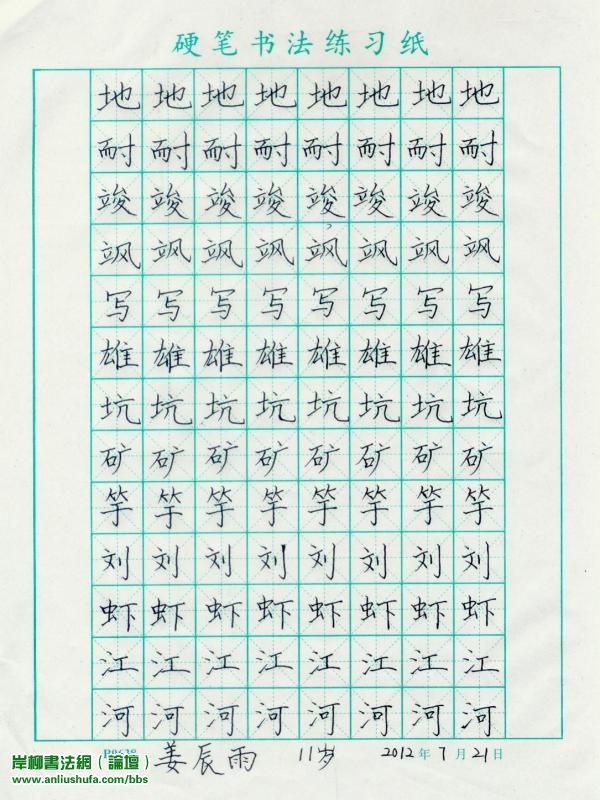 硬笔书法练习纸
地地地地地地地地
耐耐耐耐耐耐耐耐
竣竣竣竣竣竣竣竣
飒飒飒飒飒飒飒飒
写写写写写写写写
雄雄雄雄雄雄雄雄
坑坑坑坑坑坑坑坑
矿矿矿矿矿矿矿矿
竽竽竽竽竽竽竽竽
刘刘刘刘刘刘刘刘
虾虾虾虾虾虾虾虾
江江江江江江江江
河河河河河河河河
姜辰雨 11岁 2012年7月21日
岸柳書法網（論壇）
www.anliushufa.com/bbs